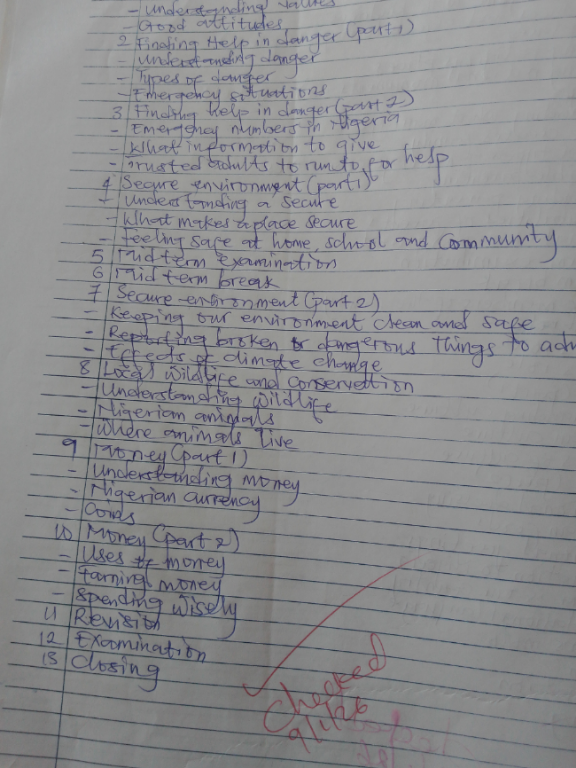 - Understanding values
- Good attitudes
2 Finding Help in danger (part 1)
- Understanding danger
- Types of danger
- Emergency situations
3 Finding help in danger (part 2)
- Emergency numbers in Nigeria
- What information to give
- Trusted adults to run to for help
4 Secure environment (part 1)
- Understanding a secure
- What makes a place secure
- Feeling safe at home, school and community
5 Mid term examination
6 Mid term break
7 Secure environment (part 2)
- Keeping our environment clean and safe
- Reporting broken or dangerous things to adu
- Effects of climate change
8 Local wildlife and conservation
- Understanding wildlife
- Nigerian animals
- Where animals live
9 Money (part 1)
- Understanding money
- Nigerian currency
- Coins
10 Money (part 2)
- Uses of money
- Earning money
- Spending wisely
11 Revision
12 Examination
13 Closing
Checked
9/1/26